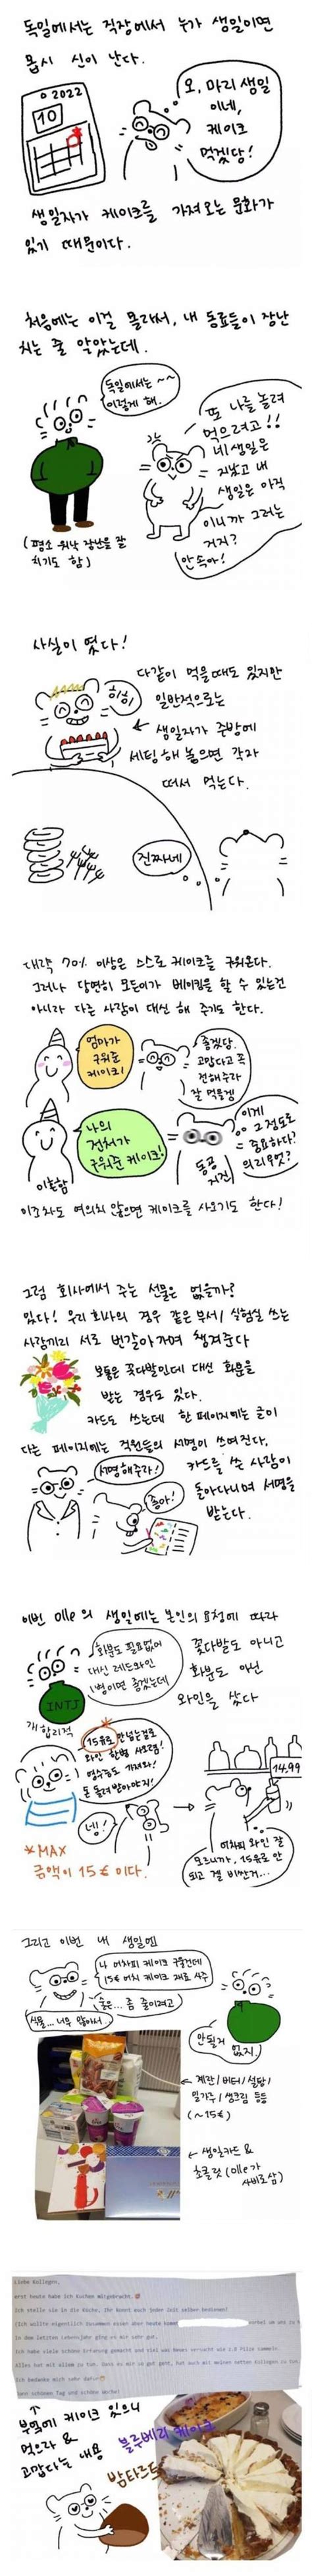 독일에서는 직장에서 누가 생일이면
몹시 신이 난다.
2022
10
오, 마리 생일
이네,
케이크
먹겠당!
생일자가 케이크를 가져오는 문화가
있기 때문이다.
처음에는 이걸 몰라서, 내 동료들이 장난
치는 줄 알았는데.
독일에서는~~
이렇게 해.
또 나를 놀려
먹으려고!!
네 생일은
지났고 내
생일은 아직
이니까 그러는
거지?
안속아!
(평소 워낙 장난을 잘
치기도 함)
사실이 였다!
히히
다같이 먹을때도 있지만
일반적으로는
생일자가 주방에
세팅해 놓으면 각자
떠서 먹는다.
진짜네
대략 70% 이상은 스스로 케이크를 구워온다.
그러나 당연히 모든이가 베이킹을 할 수 있는건
아니라 다른 사람이 대신 해 주기도 한다.
엄마가
구워준
케이크!
좋겠당.
고맙다고 꼭
전해주라
잘 먹을겜
나의
전처가
구워준 케이크!
이혼함
동공
지진
이게
그 정도로
중요하다?
의리무엇?
이조차도 여의치 않으면 케이크를 사오기도 한다!
그럼 회사에서 주는 선물은 없을까?
있다! 우리 회사의 경우 같은 부서/실험실 쓰는
사람끼리 서로 번갈아가며 챙겨준다
보통은 꽃다발인데 대신 화분을
받는 경우도 있다.
카드도 쓰는데 한 페이지에는 글이
다른 페이지에는 직원들의 서명이 쓰여진다.
서명해주라!
좋아!
카드를 쓴 사람이
돌아다니며 서명을
받는다.
이번 olle의 생일에는 본인의 요청에 따라
화분도 필요없어
대신 레드와인
1병이면 좋겠는데
꽃다발도 아니고
화분도 아닌
와인을 샀다
INTJ
개합리적
15유로 안넘는걸로
와인 한병 사오렴!
영수증도 가져와!
돈 돌려 받아야지!
네!
14.99
어차피 와인 잘
모르니까, 15유로 안
되고 젤 비싼거...
*MAX
금액이 15€ 이다.
그리고 이번 내 생일엔
나 어차피 케이크 구울건데
15€ 어치 케이크 재료 사주
식물... 너무 많아서..
술은... 좀 줄이려고
안될거
없지.
계란/버터/설탕/
밀가루/생크림 등등
(~15€)
생일카드 &
초콜릿(olle가
사비로 삼)
Liebe Kollegen,
erst heute habe ich Kuchen mitgebracht.
Ich stelle sie in die Küche, Ihr könnt euch jeder Zeit selber bedienen!
In dem letzten Lebensjahr ging es mir sehr gut.
Ich bedanke mich sehr dafür
부엌에 케이크 있으니
먹으라 &
고맙다는 내용
블루베리 케이크
밤타르트